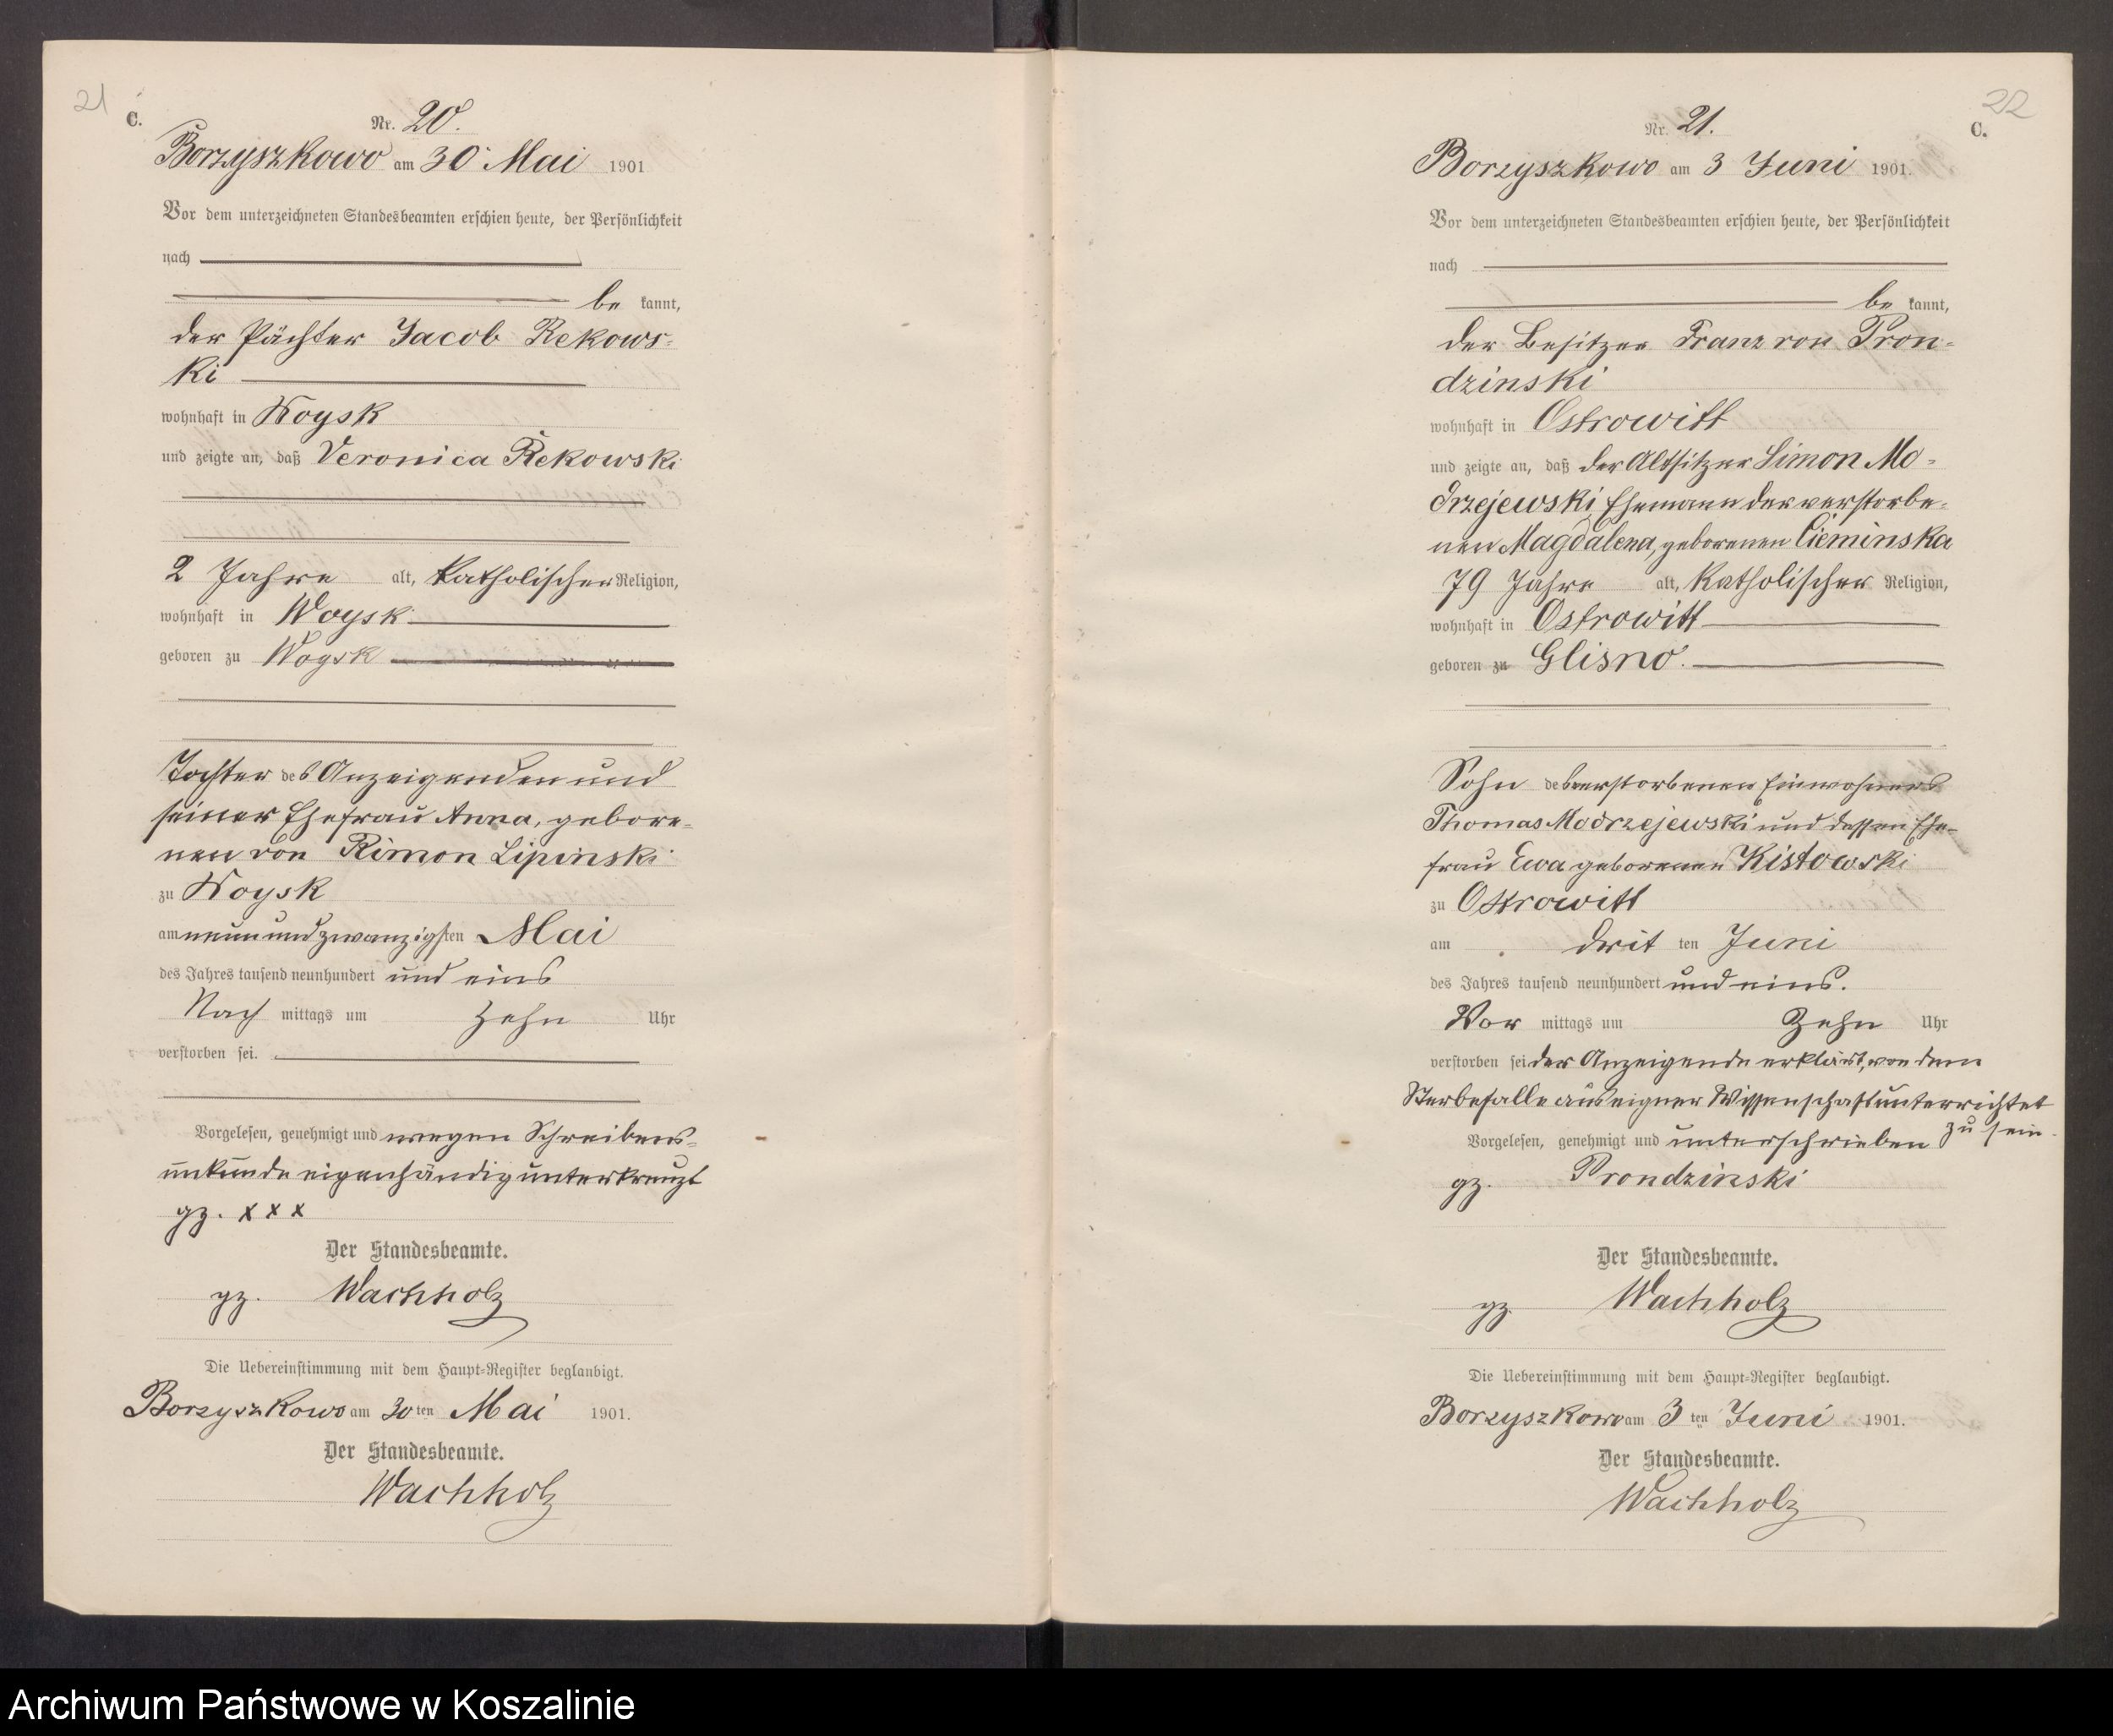 21
C.
Nr. 20.
Borzyszkowo am 30. Mai 1901
Vor dem unterzeichneten Standesbeamten erschien heute, der Persönlichkeit
nach
be kannt,
der Pächter Jacob Rekows-
ki
wohnhaft in Woysk
und zeigte an, daß Veronica Rekowski
2 Jahre alt, katholischer Religion,
wohnhaft in Woysk
geboren zu Woysk
Tochter des Anzeigenden und
seiner Ehefrau Anna, gebore-
nen von Rimon Lipinski
zu Woysk
am neunundzwanzigsten Mai
des Jahres tausend neunhundert und eins
Nach mittags um zehn Uhr
verstorben sei.
Vorgelesen, genehmigt und wegen Schreibens-
unkunde eigenhändig unterkreuzt
gz. x x x
Der Standesbeamte.
gz. Wachholz
Die Uebereinstimmung mit dem Haupt-Register beglaubigt.
Borzyszkowo am 30ten Mai 1901.
Der Standesbeamte.
Wachholz
22
C.
Nr. 21.
Borzyszkowo am 3 Juni 1901.
Vor dem unterzeichneten Standesbeamten erschien heute, der Persönlichkeit
nach
be kannt,
der Besitzer Franz von Pron-
dzinski
wohnhaft in Ostrowitt
und zeigte an, daß der Altsitzer Simon Mo-
drzejewski, Ehemann der verstorbe-
nen Magdalena, geborenen Cieminska
79 Jahre alt, katholischer Religion,
wohnhaft in Ostrowitt
geboren zu Glisno.
Sohn des verstorbenen Einwohners
Thomas Modrzejewski und dessen Ehe-
frau Ewa geborenen Kistowski
zu Ostrowitt
am drit ten Juni
des Jahres tausend neunhundert und eins.
Vor mittags um zehn Uhr
verstorben sei der Anzeigende erklärt, von dem
Sterbefalle aus eigner Wissenschaft unterrichtet
zu sein.
Vorgelesen, genehmigt und unterschrieben
gz. Prondzinski
Der Standesbeamte.
gz. Wachholz
Die Uebereinstimmung mit dem Haupt-Register beglaubigt.
Borzyszkowo am 3ten Juni 1901.
Der Standesbeamte.
Wachholz
Archiwum Państwowe w Koszalinie